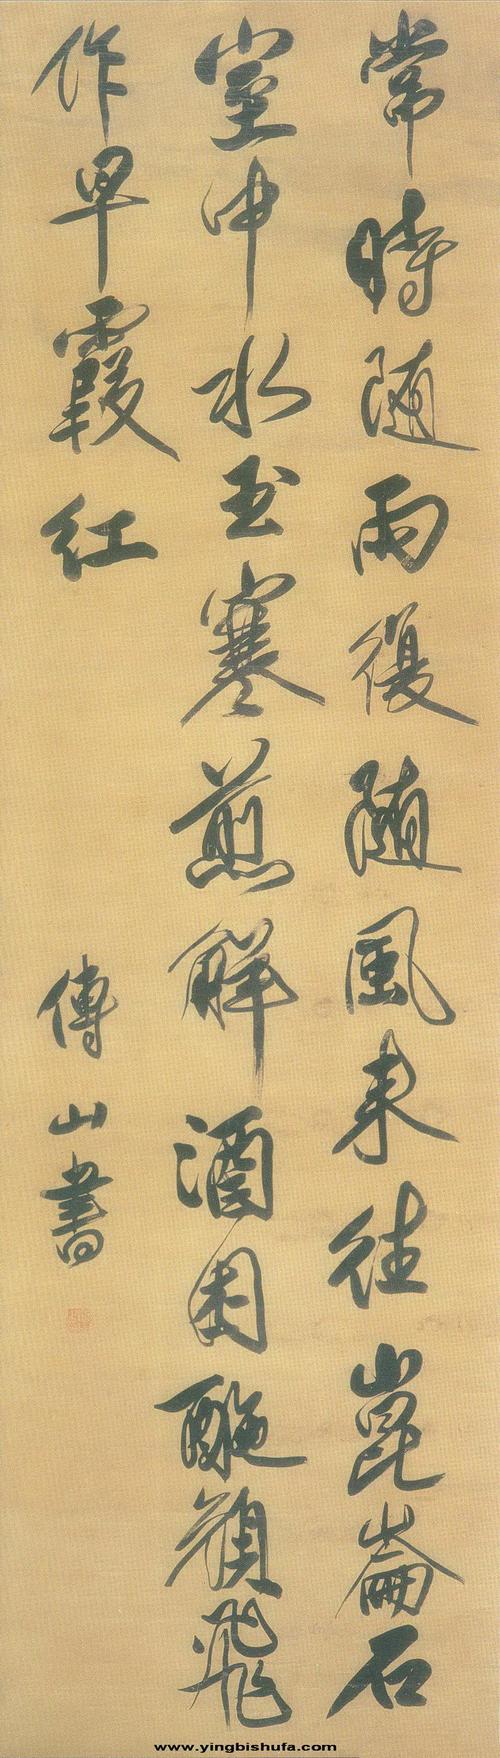 常時随雨復随風来往崑崙石
室中水玉寒煎解酒困酡顔飛
作早霞紅
傅山書
www.yingbishufa.com